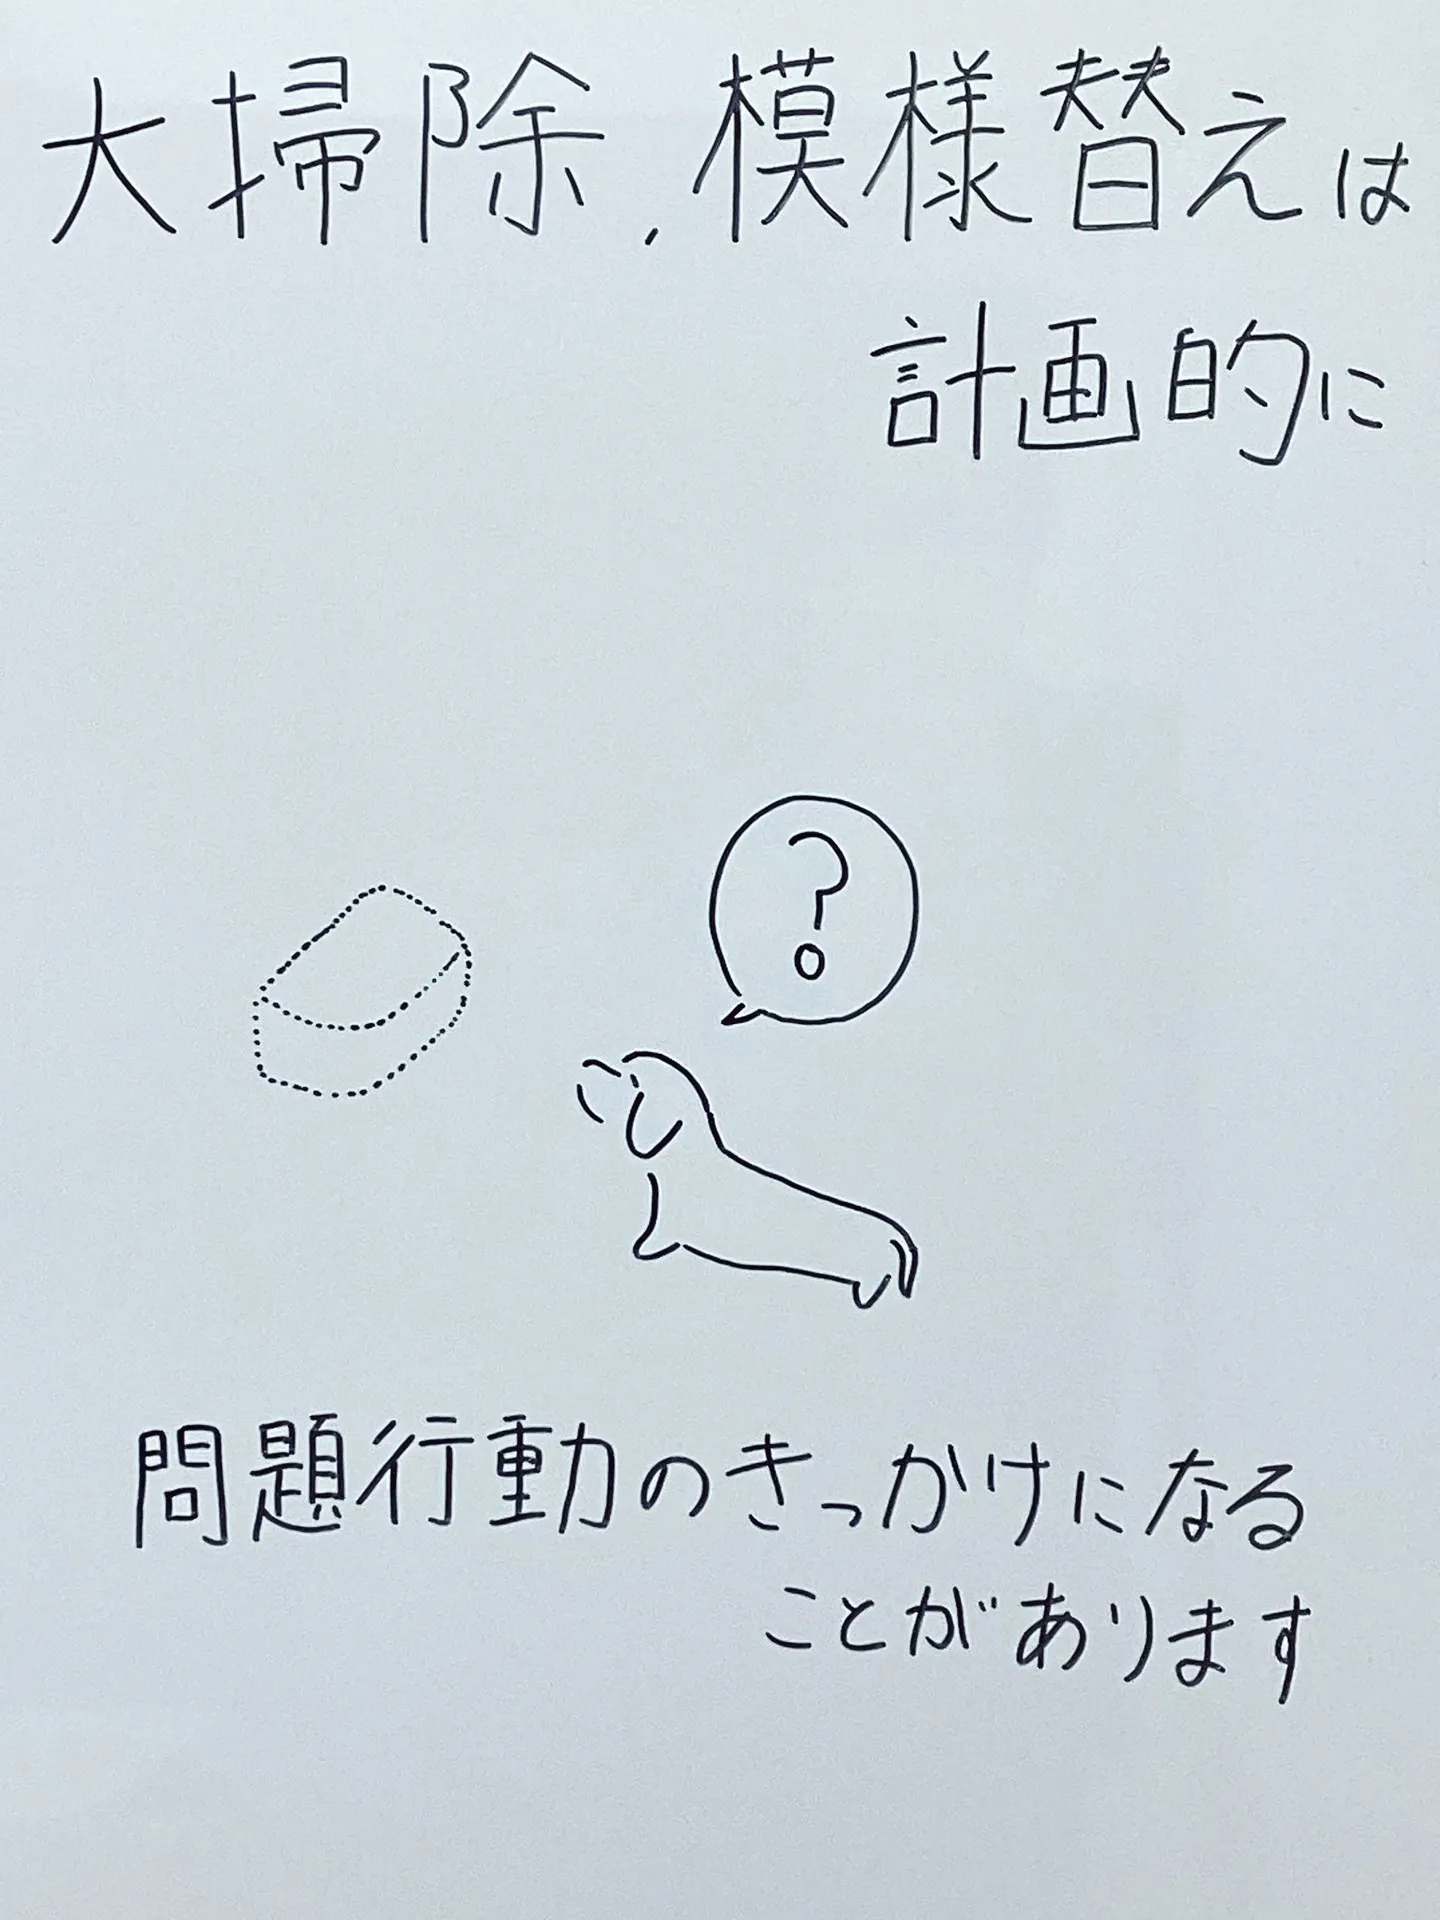 大掃除,模様替えは
計画的に
?
問題行動のきっかけになる
ことがあります